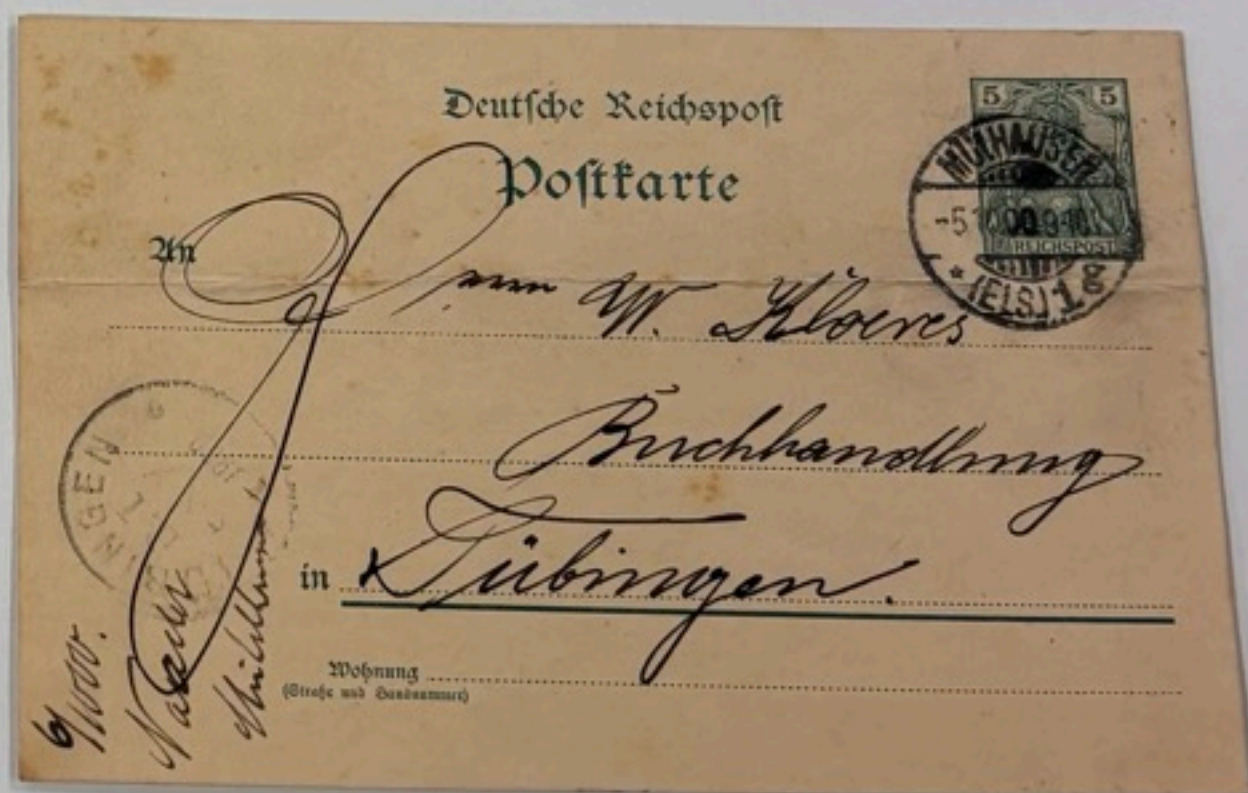 Deutsche Reichspost
Postkarte
5 5
REICHSPOST
MÜLHAUSEN
-5.10.00.9-10
* (ELS.) 1 g
An Herrn W. Kloeres
Buchhandlung
in Tübingen.
Wohnung
(Straße und Hausnummer)
NGEN
6/1000.